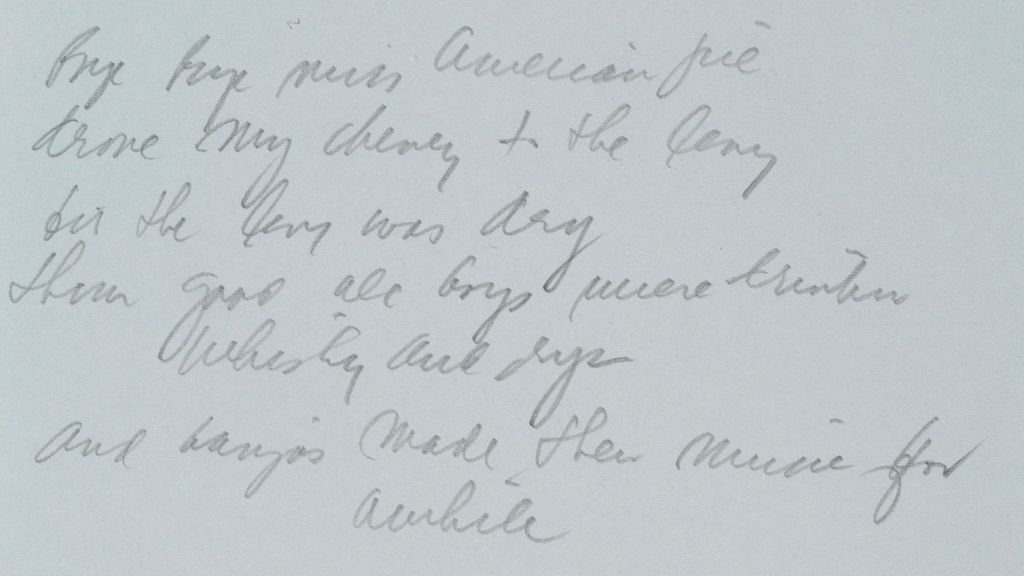 Bye bye miss American pie
drove my chevey to the levy
but the levy was dry
them good ole boys were drinkin
whisky and rye
and banjos made their music for
awhile